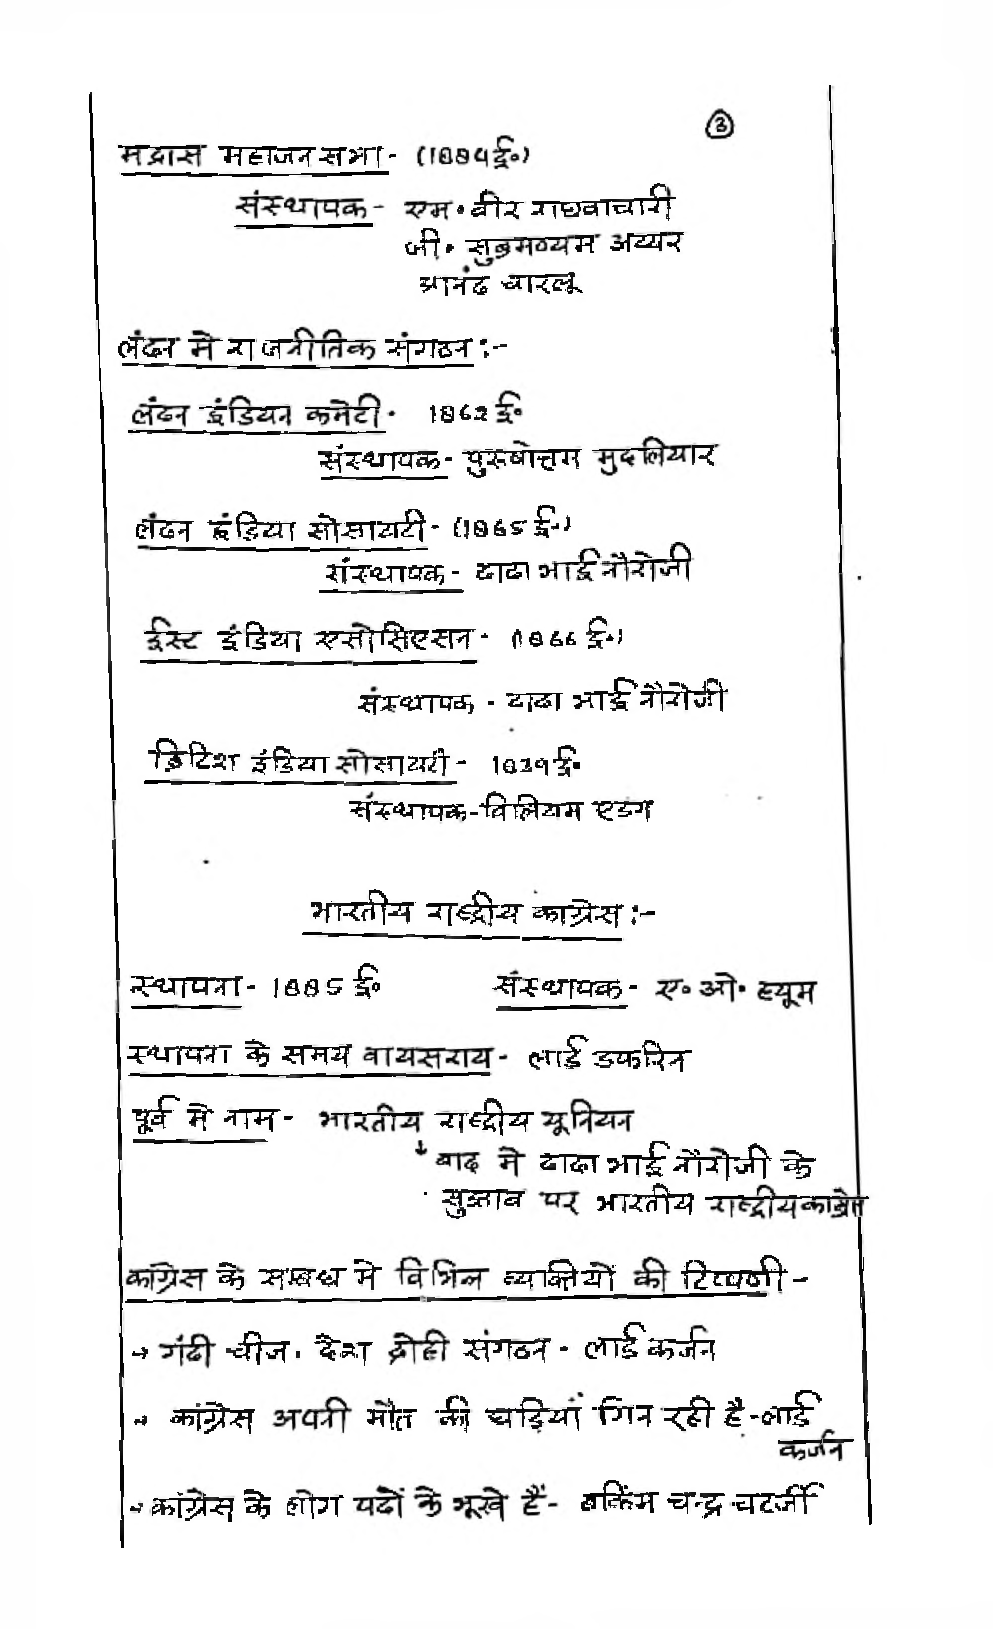 ③
मद्रास महाजन सभा - (1884ई०)
संस्थापक - एम० वीर राघवाचारी
जी० सुब्रमण्यम अय्यर
आनंद चारलू
लंदन मे राजनीतिक संगठन :-
लंदन इंडियन कमेटी - 1862 ई०
संस्थापक - पुरुषोत्तम मुदलियार
लंदन इंडिया सोसायटी - (1865 ई०)
संस्थापक - दादा भाई नौरोजी
ईस्ट इंडिया एसोसिएसन - (1866 ई०)
संस्थापक - दादा भाई नौरोजी
ब्रिटिश इंडिया सोसायटी - 1839 ई०
संस्थापक - विलियम एडग
भारतीय राष्ट्रीय काग्रेस :-
स्थापना - 1885 ई० संस्थापक - ए० ओ० ह्यूम
स्थापना के समय वायसराय - लार्ड डफरिन
पूर्व मे नाम - भारतीय राष्ट्रीय यूनियन
↓ बाद मे दादा भाई नौरोजी के
सुझाव पर भारतीय राष्ट्रीय काग्रेस
कांग्रेस के सम्बंध मे विभिन्न व्यक्तियों की टिप्पणी -
→ गंदी चीज, देश द्रोही संगठन - लार्ड कर्जन
→ कांग्रेस अपनी मौत की घड़ियां गिन रही है - लार्ड
कर्जन
→ कांग्रेस के लोग पदों के भूखे हैं - बकिंम चन्द्र चटर्जी